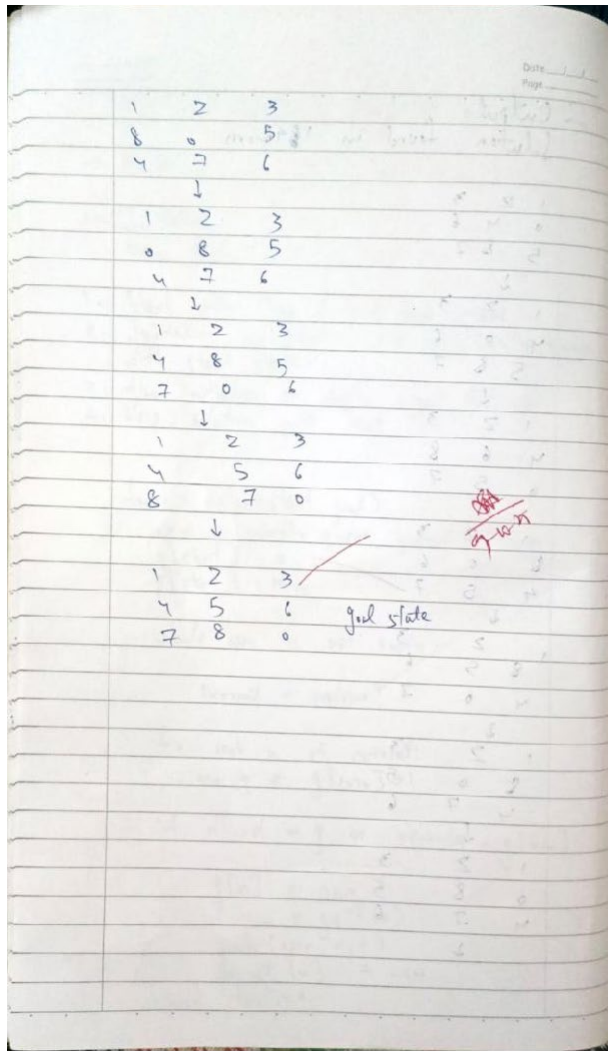 Date
Page
1 2 3
8 0 5
4 7 6
↓
1 2 3
0 8 5
4 7 6
↓
1 2 3
4 8 5
7 0 6
↓
1 2 3
4 5 6
8 7 0
↓
1 2 3
4 5 6 goal state
7 8 0